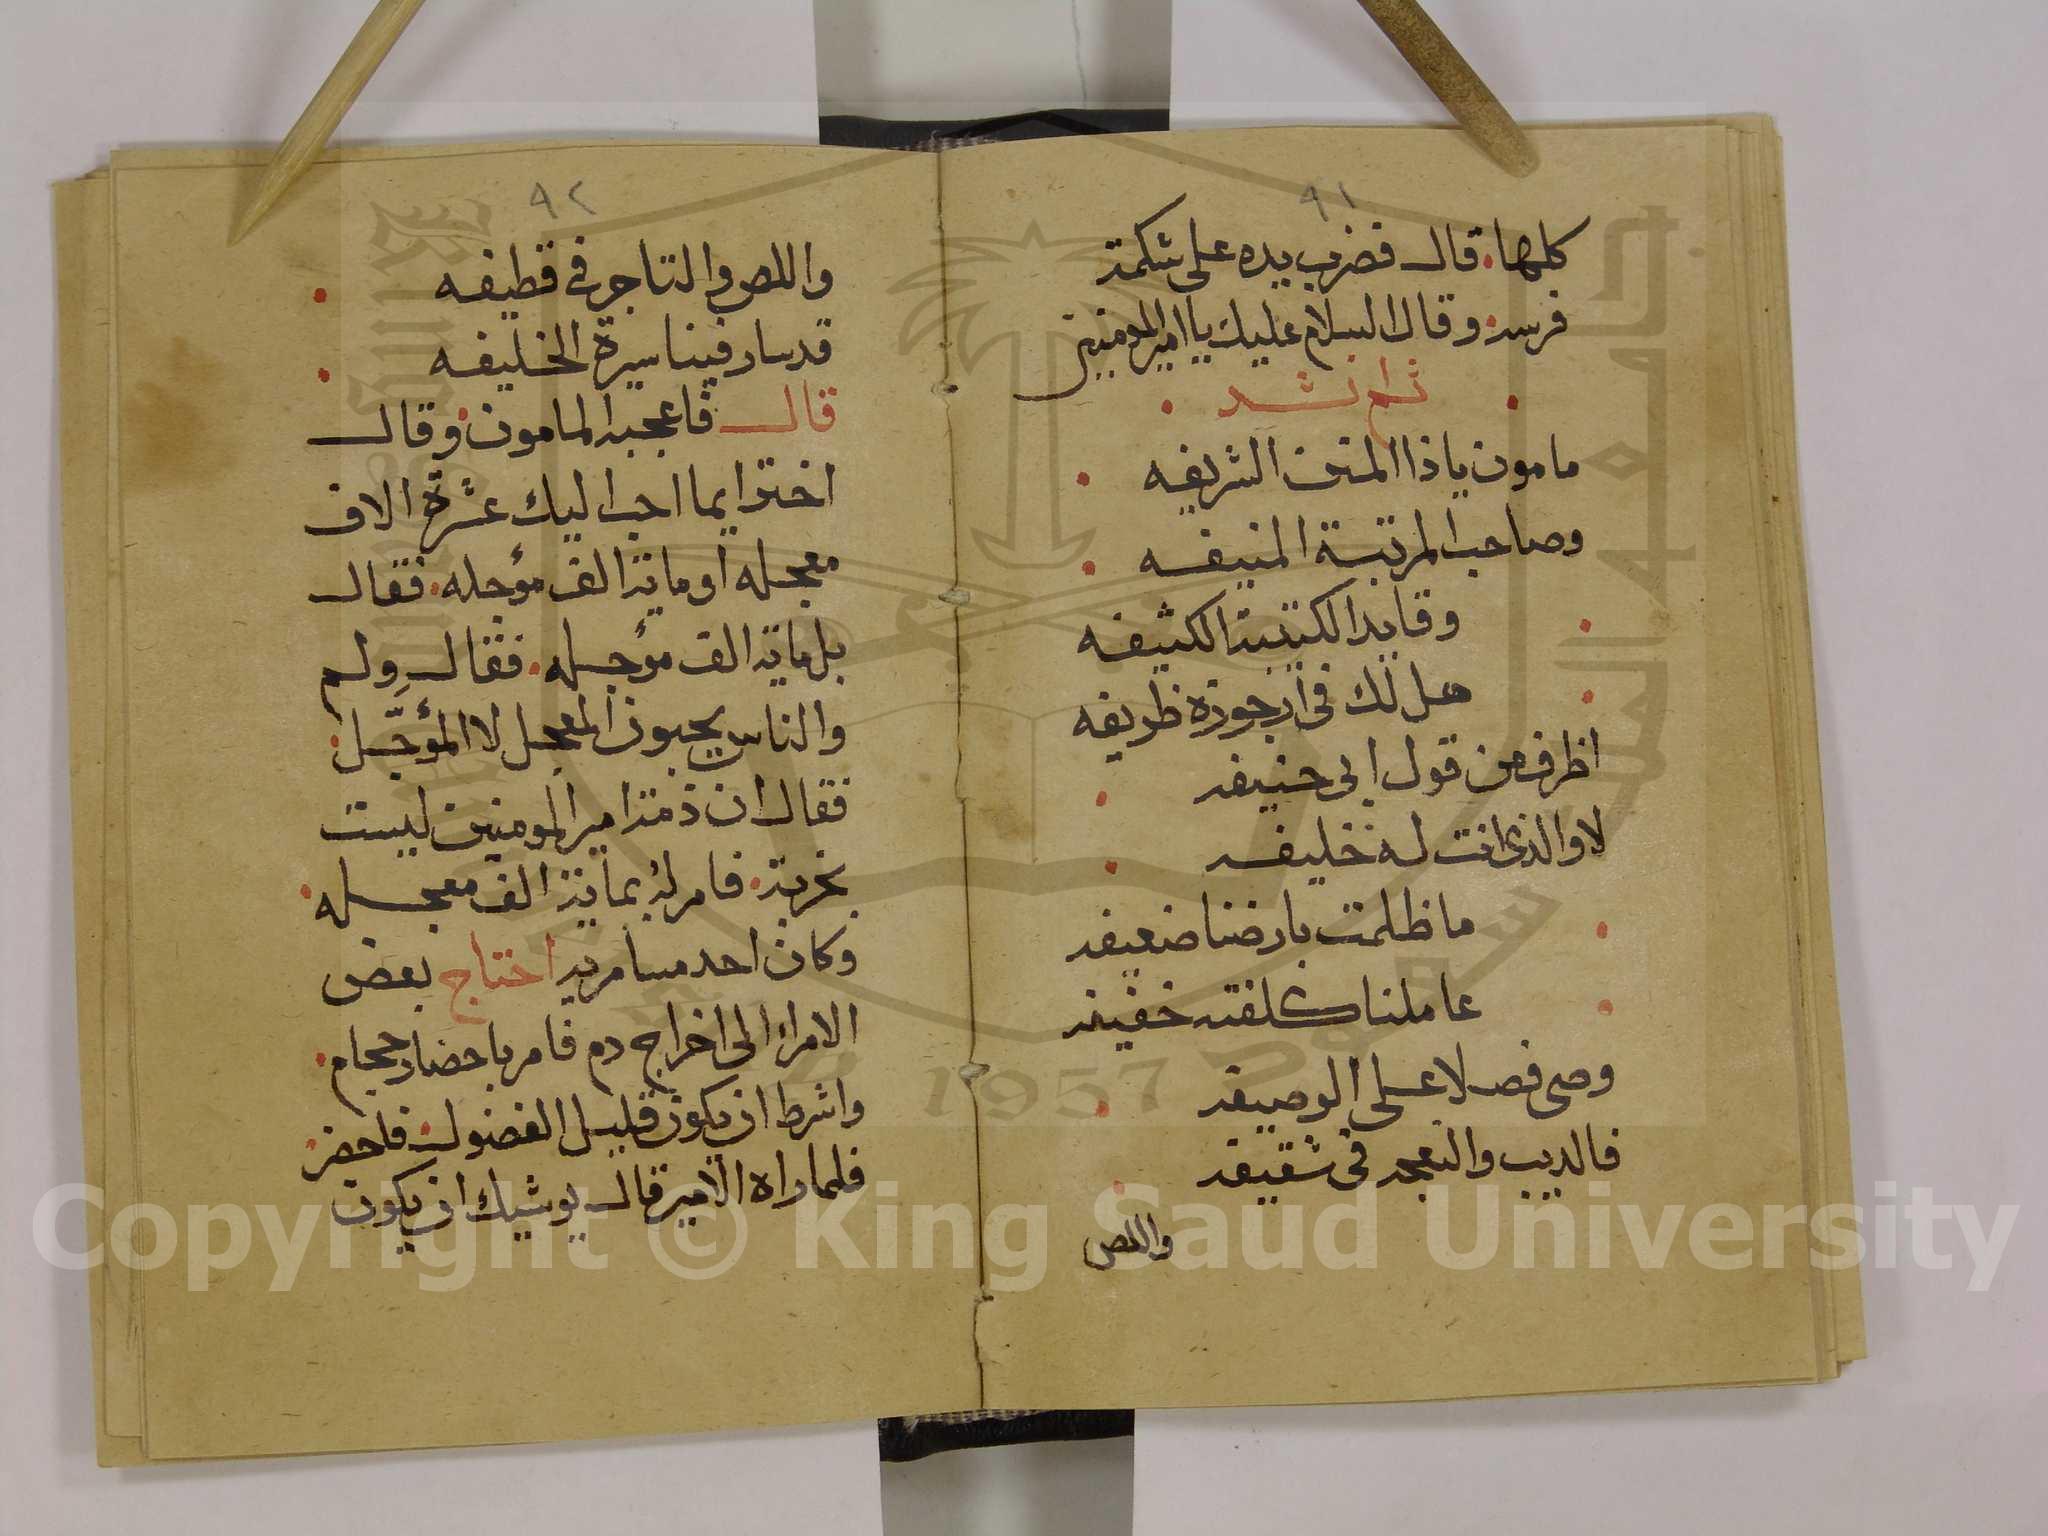 ٩١
كلها. قال فضرب بيده على شكمة
فرسه. وقال السلام عليك يا امير المومنين
ثم انشد
مامون ياذا المنن الشريفه
وصاحب المرتبة المنيفه
وقايد الكتيبة الكثيفه
هل لك فى ارجوزة ظريفه
اظرف من قول ابى حنيفه
لا والذى انت له خليفه
ما ظلمت بارضنا ضعيفه
عاملنا كلفته خفيفه
فالديب والنعجه فى سقيفه
واللص
٩٢
واللص والتاجر فى قطيفه
قد سار فينا سيرة الخليفه
قال فاعجب المامون وقال
اختر ايما احب اليك عشرة الاف
معجله او ماية الف مؤجله. فقال
بل ماية الف مؤجله. فقال ولم
والناس يحبون المعجل لا المؤجّل.
فقال ان ذمة امير المومنين ليست
بخربة. فامر له بماية الف معجله.
وكان احد مسامريه احتاج بعض
الامراء الى اخراج دم فامر باحضار حجام.
واشرط ان يكون قليل الفضول. فاحضر.
فلما راه الامير قال يوشيك ان يكون
Copyright © King Saud University
1957